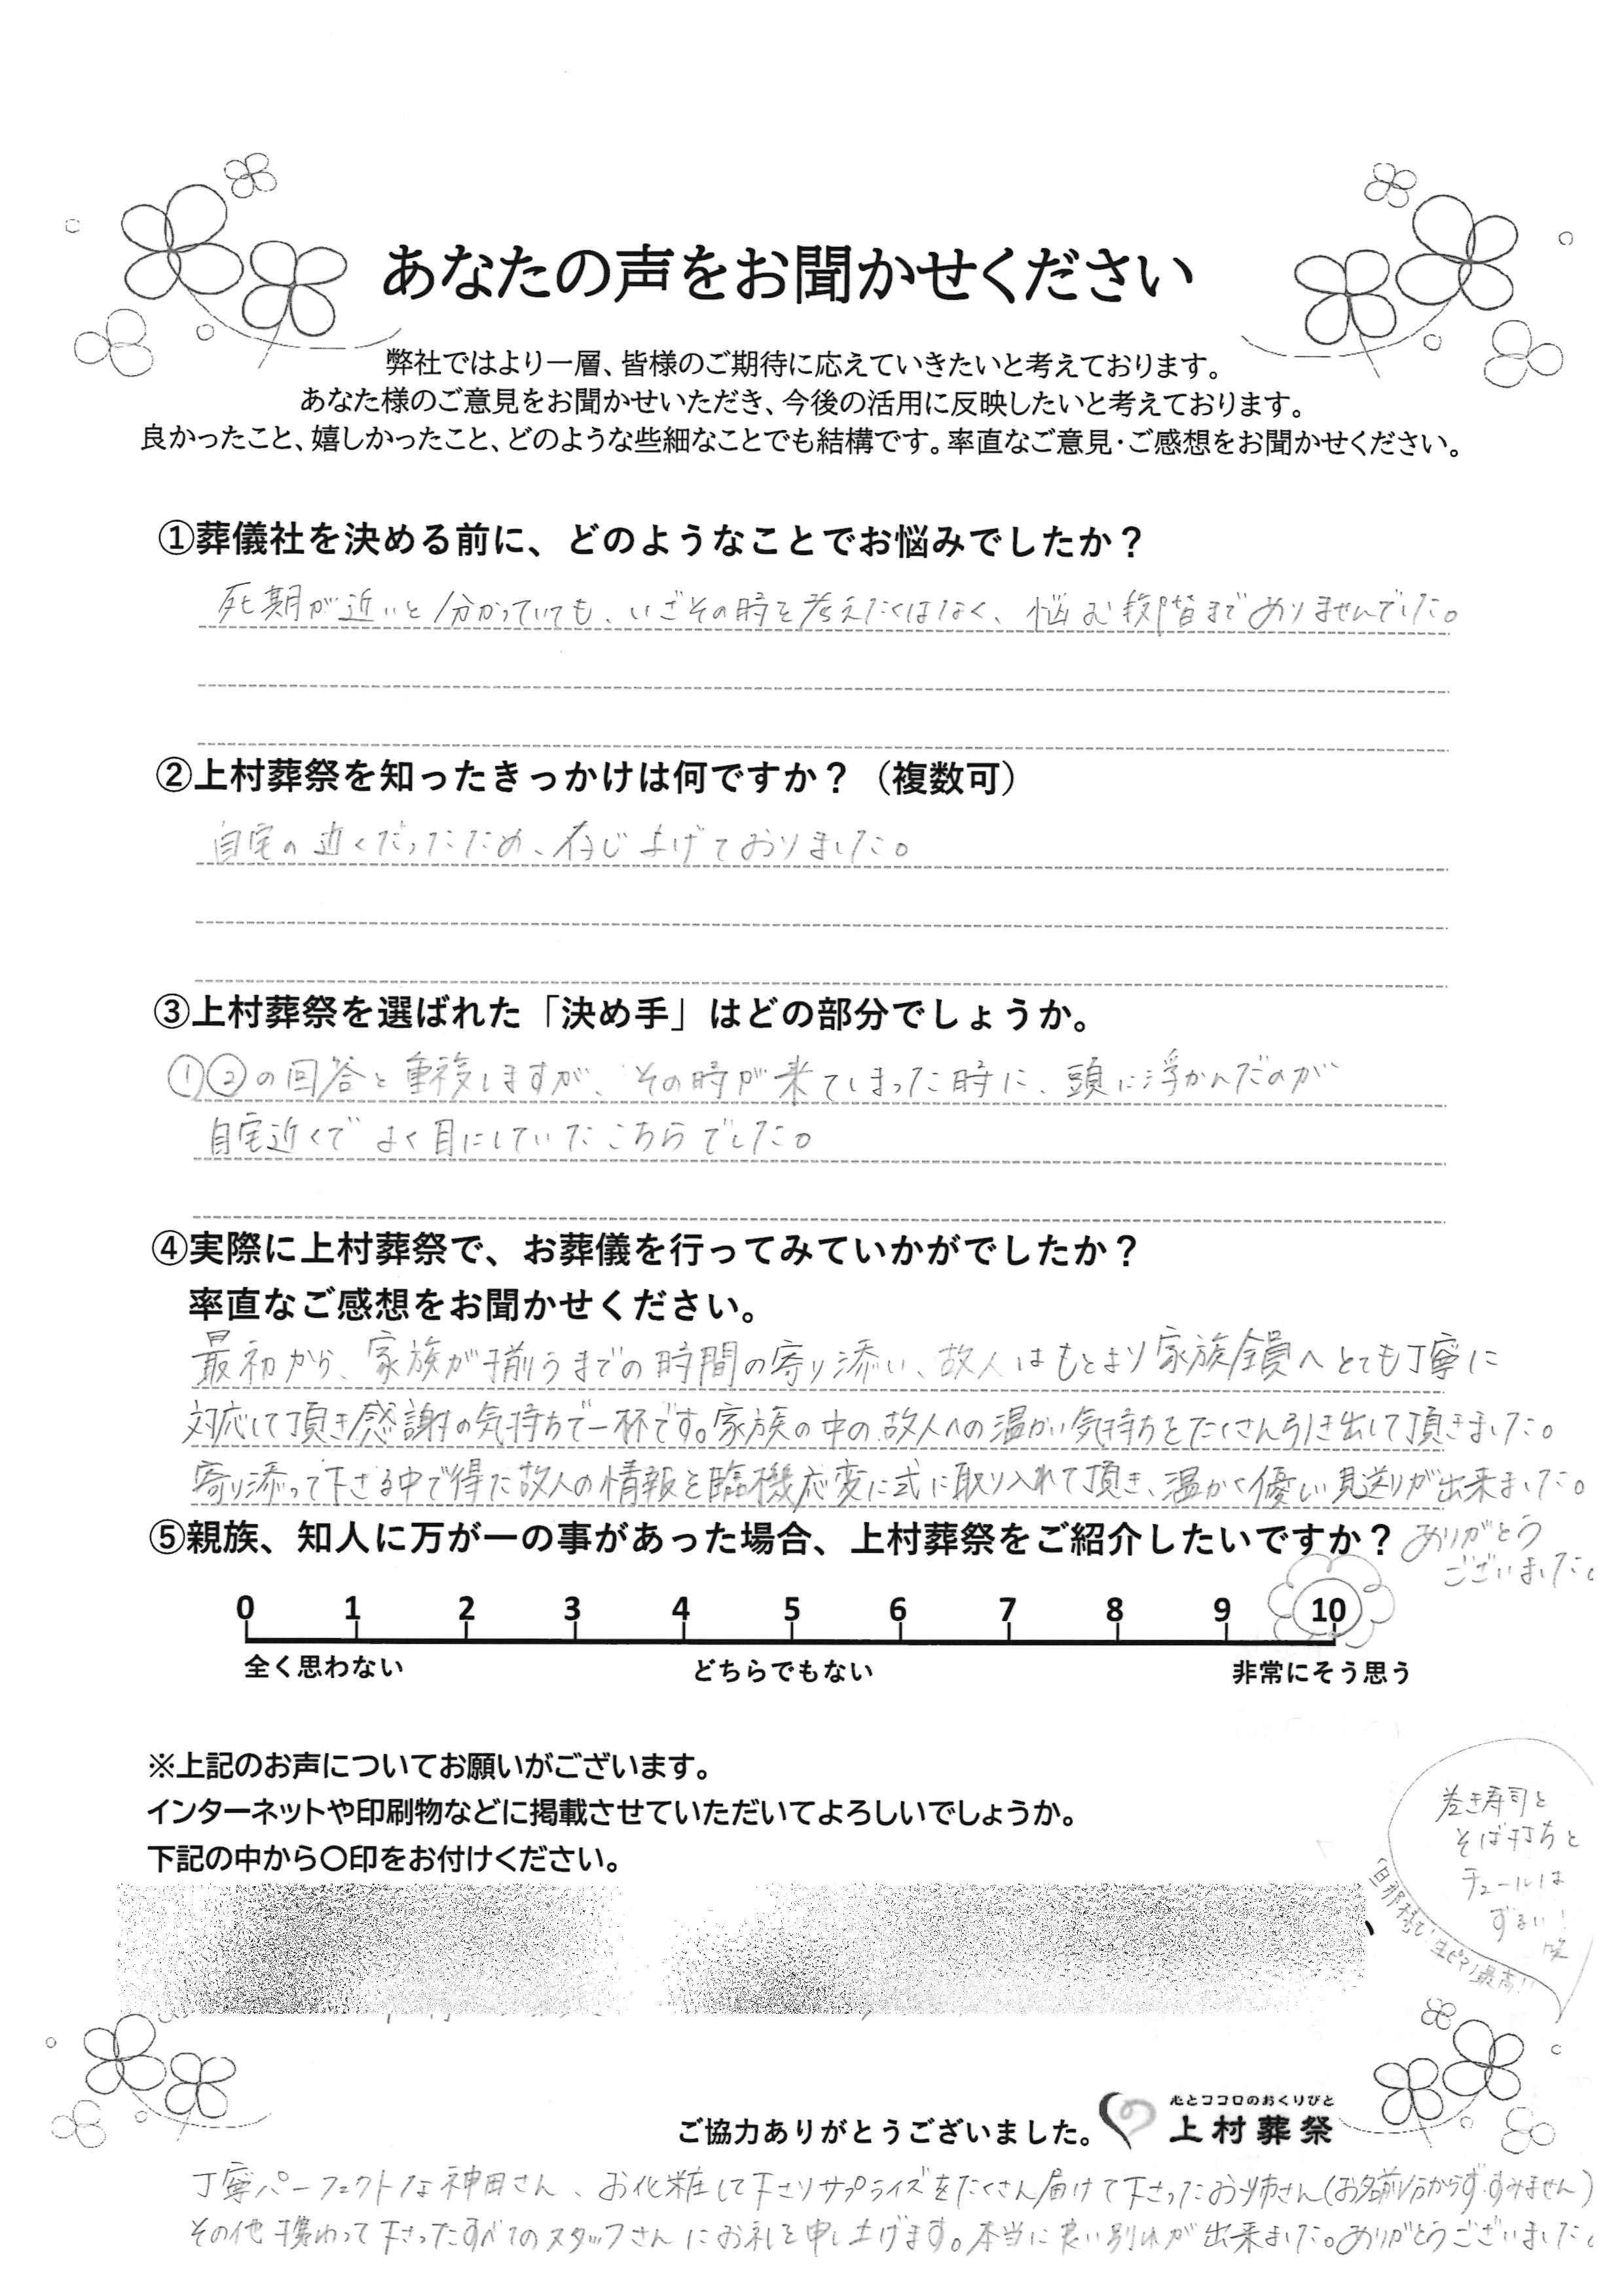 あなたの声をお聞かせください
弊社ではより一層、皆様のご期待に応えていきたいと考えております。
あなた様のご意見をお聞かせいただき、今後の活用に反映したいと考えております。
良かったこと、嬉しかったこと、どのような些細なことでも結構です。率直なご意見・ご感想をお聞かせください。
①葬儀社を決める前に、どのようなことでお悩みでしたか？
死期が近いと分かっていても、いざその時を考えたくはなく、悩む段階までありませんでした。
②上村葬祭を知ったきっかけは何ですか？（複数可）
自宅の近くだったため、存じ上げておりました。
③上村葬祭を選ばれた「決め手」はどの部分でしょうか。
①②の回答と重複しますが、その時が来てしまった時に、頭に浮かんだのが
自宅近くでよく目にしていたこちらでした。
④実際に上村葬祭で、お葬儀を行ってみていかがでしたか？
率直なご感想をお聞かせください。
最初から、家族が揃うまでの時間の寄り添い、故人はもとより家族全員へとても丁寧に
対応して頂き感謝の気持ちで一杯です。家族の中の故人への温かい気持ちをたくさん引き出して頂きました。
寄り添って下さる中で得た故人の情報を臨機応変に式に取り入れて頂き、温かく優しい見送りが出来ました。
ありがとう
ございました。
⑤親族、知人に万が一の事があった場合、上村葬祭をご紹介したいですか？
0 1 2 3 4 5 6 7 8 9 10
全く思わない どちらでもない 非常にそう思う
※上記のお声についてお願いがございます。
インターネットや印刷物などに掲載させていただいてよろしいでしょうか。
下記の中から〇印をお付けください。
巻き寿司と
そば打ちと
チュールは
ずるい！
笑
生ピアノ最高！！
ご協力ありがとうございました。
心とココロのおくりびと
上村葬祭
丁寧パーフェクトな神田さん、お化粧して下さりサプライズをたくさん届けて下さったお姉さん(お名前分からずすみません)
その他携わって下さったすべてのスタッフさんにお礼を申し上げます。本当に良い別れが出来ました。ありがとうございました。